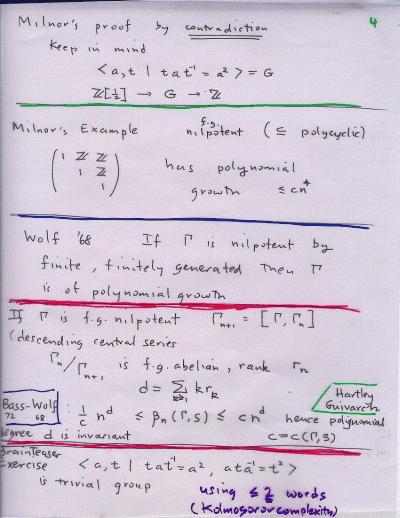 Milnor's proof by contradiction 4
Keep in mind
< a, t | t a t⁻¹ = a² > = G
ℤ[½] → G → ℤ
Milnor's Example f.g. nilpotent (⊆ polycyclic)
( 1 ℤ ℤ
1 ℤ
1 )
has polynomial
growth ≤ cn⁴
Wolf '68 If Γ is nilpotent by
finite, finitely generated Then Γ
is of polynomial growth
If Γ is f.g. nilpotent Γₙ₊₁ = [Γ, Γₙ]
(descending central series
Γₙ/Γₙ₊₁ is f.g. abelian, rank rₙ
d = Σ k≥1 k rₖ
Hartley
Guivarch
Bass-Wolf
72 68
1/c nᵈ ≤ βₙ(Γ,S) ≤ cnᵈ hence polynomial
degree d is invariant c = c(Γ,S)
BrainTeaser
Exercise < a, t | t a t⁻¹ = a², a t a⁻¹ = t² >
is trivial group
using ≤ 2 words
(Kolmogorov complexity)